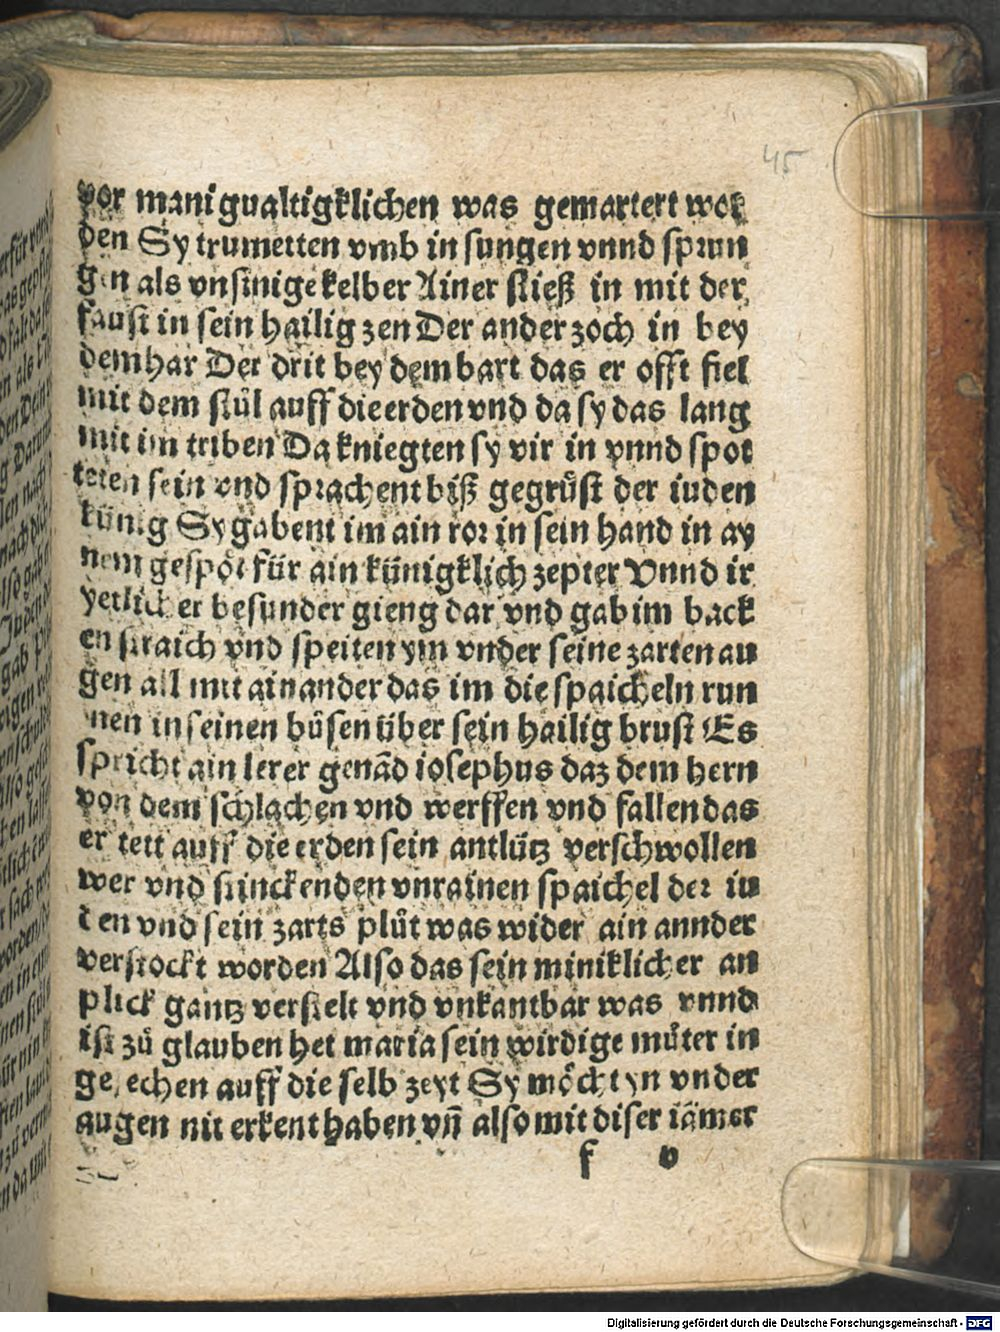 45
vor manigualtigklichen was gemartert wor
den Sy trumetten vmb in sungen vnnd sprun
gen als vnsinige kelber Ainer stieß in mit der
faust in sein hailig zen Der ander zoch in bey
dem har Der drit bey dem bart das er offt fiel
mit dem stůl auff die erden vnd da sy das lang
mit im triben Da kniegten sy vir in vnnd spot
teten sein vnd sprachent biß gegrůst der iuden
künig Sy gabent im ain ror in sein hand in ay
nem gespöt für ain künigklich zepter Vnnd ir
yetlicher besunder gieng dar vnd gab im back
en straich vnd speiten ym vnder seine zarten au
gen all mit ainander das im die spaicheln run
nen in seinen bůsen über sein hailig brust Es
spricht ain lerer genãd iosephus daz dem hern
von dem schlachen vnd werffen vnd fallen das
er tett auff die erden sein antlütz verschwollen
wer vnd stinckenden vnrainen spaichel der iu
den vnd sein zarts plůt was wider ain annder
verstockt worden Also das sein miniklicher an
plick gantz verstelt vnd vnkantbar was vnnd
ist zů glauben het maria sein wirdige můter in
gesechen auff die selb zeyt Sy möcht yn vnder
augen nit erkent haben vñ also mit diser iämer
f v
Digitalisierung gefördert durch die Deutsche Forschungsgemeinschaft - DFG